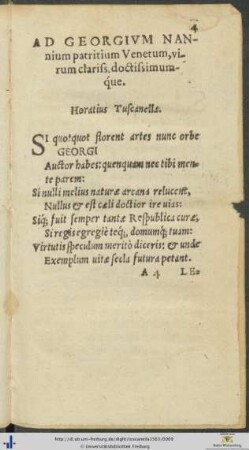 4
AD GEORGIVM NAN-
nium patritium Venetum, vi-
rum clariss. doctissimum-
q́ue.
Horatius Tuscanella.
SI quotquot florent artes nunc orbe
GEORGI
Auctor habes: quenquam nec tibi men-
te parem:
Si nulli melius naturæ arcana relucent,
Nullus & est cæli doctior ire uias:
Siq́; fuit semper tantæ Respublica curæ,
Si regis egregiè teq́;, domumq́; tuam:
Virtutis speculum meritò diceris: & unde
Exemplum uitæ secla futura petant.
A 4 LE-
© Universitätsbibliothek Freiburg